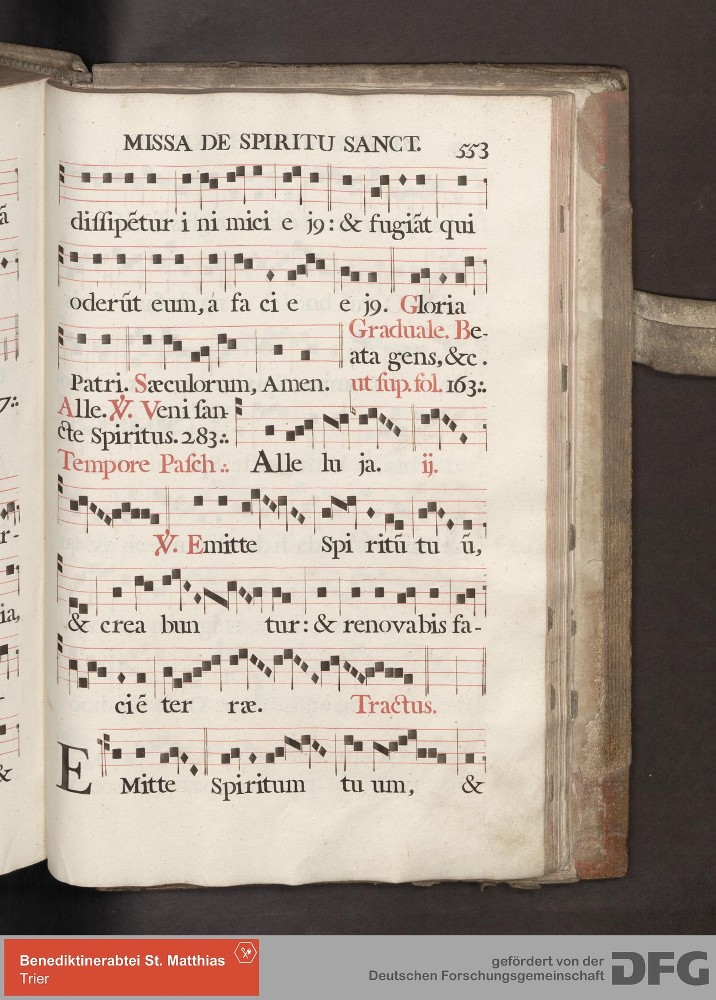 MISSA DE SPIRITU SANCT. 553
diſſipẽtur i ni mici e jꝰ: & fugiãt qui
oderũt eum, á fa ci e e jꝰ. Gloria
Graduale. Be-
ata gens, &c.
Patri. Sæculorum, Amen. ut ſup. fol. 163:.
Alle. ℣. Veni ſan-
cte Spiritus. 283:.
Tempore Paſch:. Alle lu ja. ij.
℣. Emitte Spi ritũ tu ũ,
& crea bun tur: & renovabis fa-
ciẽ ter ræ. Tractus.
E Mitte Spiritum tu um, &
ã
7:.
r-
ia,
-
&
Benediktinerabtei St. Matthias
Trier
gefördert von der
Deutschen Forschungsgemeinschaft DFG